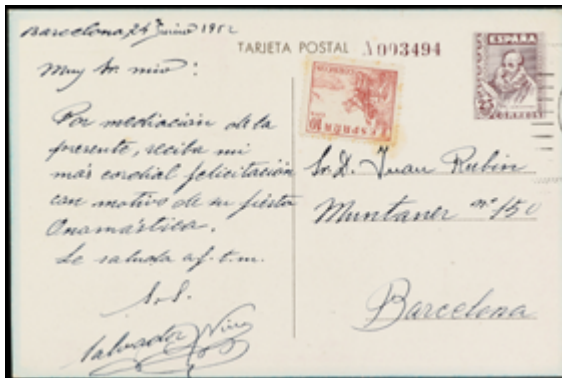 Barcelona 24 Junio 1952
TARJETA POSTAL A003494
Muy Sr. mio:
Por mediación de la
presente, reciba mi
más cordial felicitación
con motivo de su fiesta
Onomástica.
Le saluda af. t. m.
S.S.
Salvador
ESPAÑA
25
CORREOS
ESPAÑA
10
Sr. D. Juan Rubin
Muntaner nº 150
Barcelona